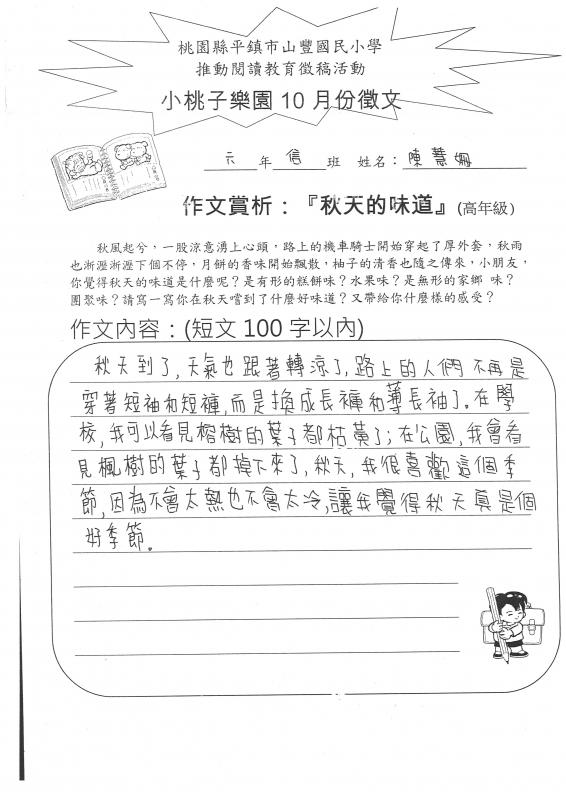 桃園縣平鎮市山豐國民小學
推動閱讀教育徵稿活動
小桃子樂園 10 月份徵文
六 年 信 班 姓名：陳慧娜
作文賞析：『秋天的味道』(高年級)
秋風起兮，一股涼意湧上心頭，路上的機車騎士開始穿起了厚外套，秋雨
也淅瀝淅瀝下個不停，月餅的香味開始飄散，柚子的清香也隨之傳來，小朋友，
你覺得秋天的味道是什麼呢？是有形的糕餅味？水果味？是無形的家鄉 味？
團聚味？請寫一寫你在秋天嚐到了什麼好味道？又帶給你什麼樣的感受？
作文內容：(短文 100 字以內)
秋天到了,天氣也跟著轉涼了,路上的人們不再是
穿著短袖和短褲,而是換成長褲和薄長袖了。在學
校,我可以看見榕樹的葉子都枯黃了;在公園,我會看
見楓樹的葉子都掉下來了,秋天,我很喜歡這個季
節,因為不會太熱也不會太冷,讓我覺得秋天真是個
好季節。